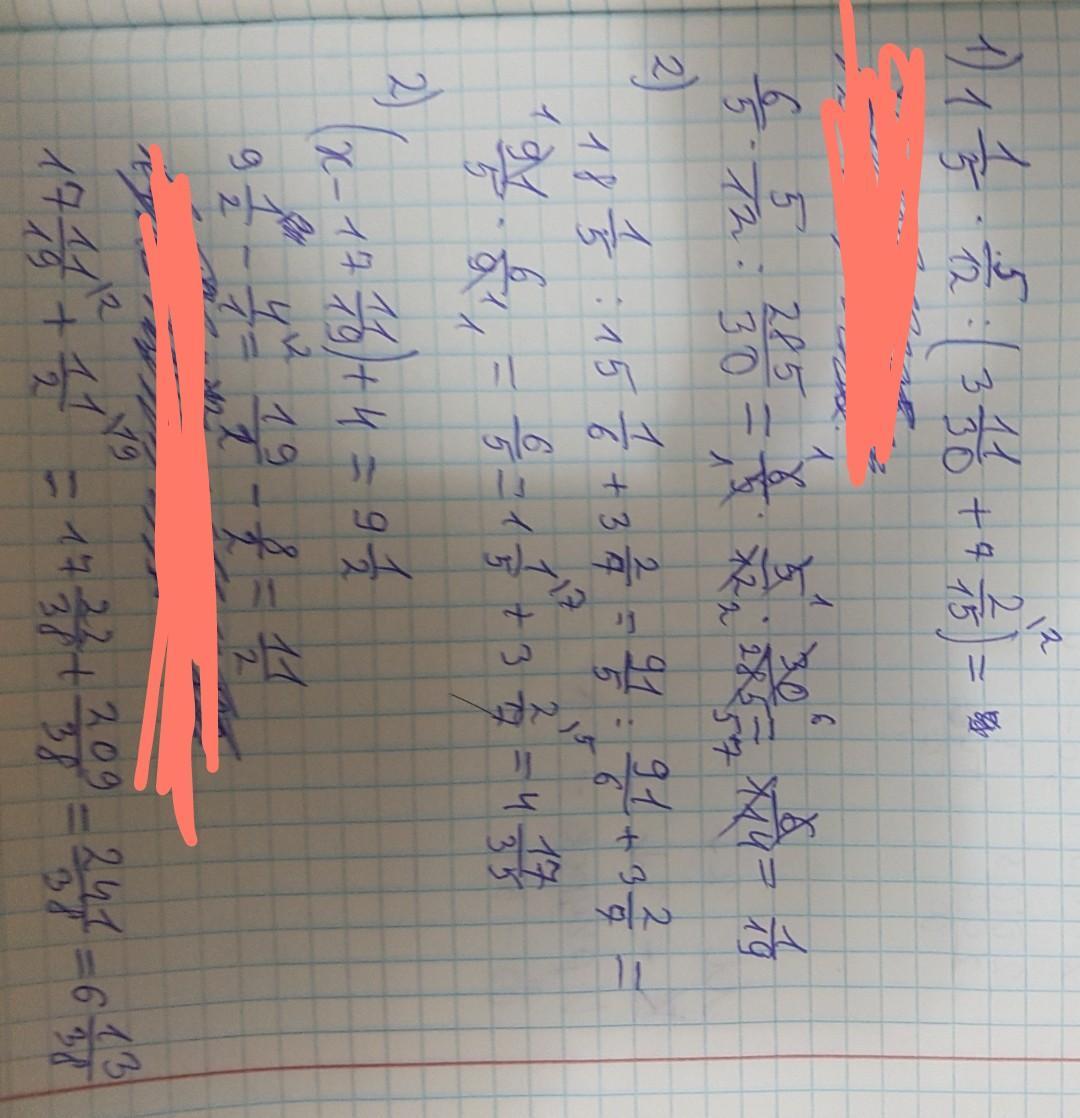 1) 1 1/5 · 5/12 : (3 11/30 + 7 2/15 \2) =
6/5 · 5/12 : 285/30 = 6/5 · 5/12 · 30/285 = 6/114 = 1/19
2) 18 1/5 : 15 1/6 + 3 2/7 = 91/5 : 91/6 + 3 2/7 =
91/5 · 6/91 = 6/5 = 1 1/5 \7 + 3 2/7 \5 = 4 17/35
2) (x - 17 11/19) + 4 = 9 1/2
9 1/2 - 4/1 \2 = 19/2 - 8/2 = 11/2
17 11/19 \2 + 11/2 \19 = 17 22/38 + 209/38 = 241/38 = 6 13/38